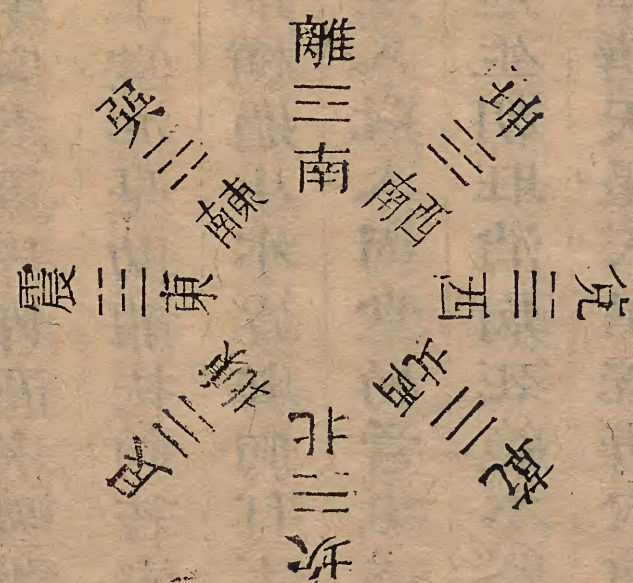 離
南
坤
西南
兌
西
乾
西北
坎
北
艮
東北
震
東
巽
東南